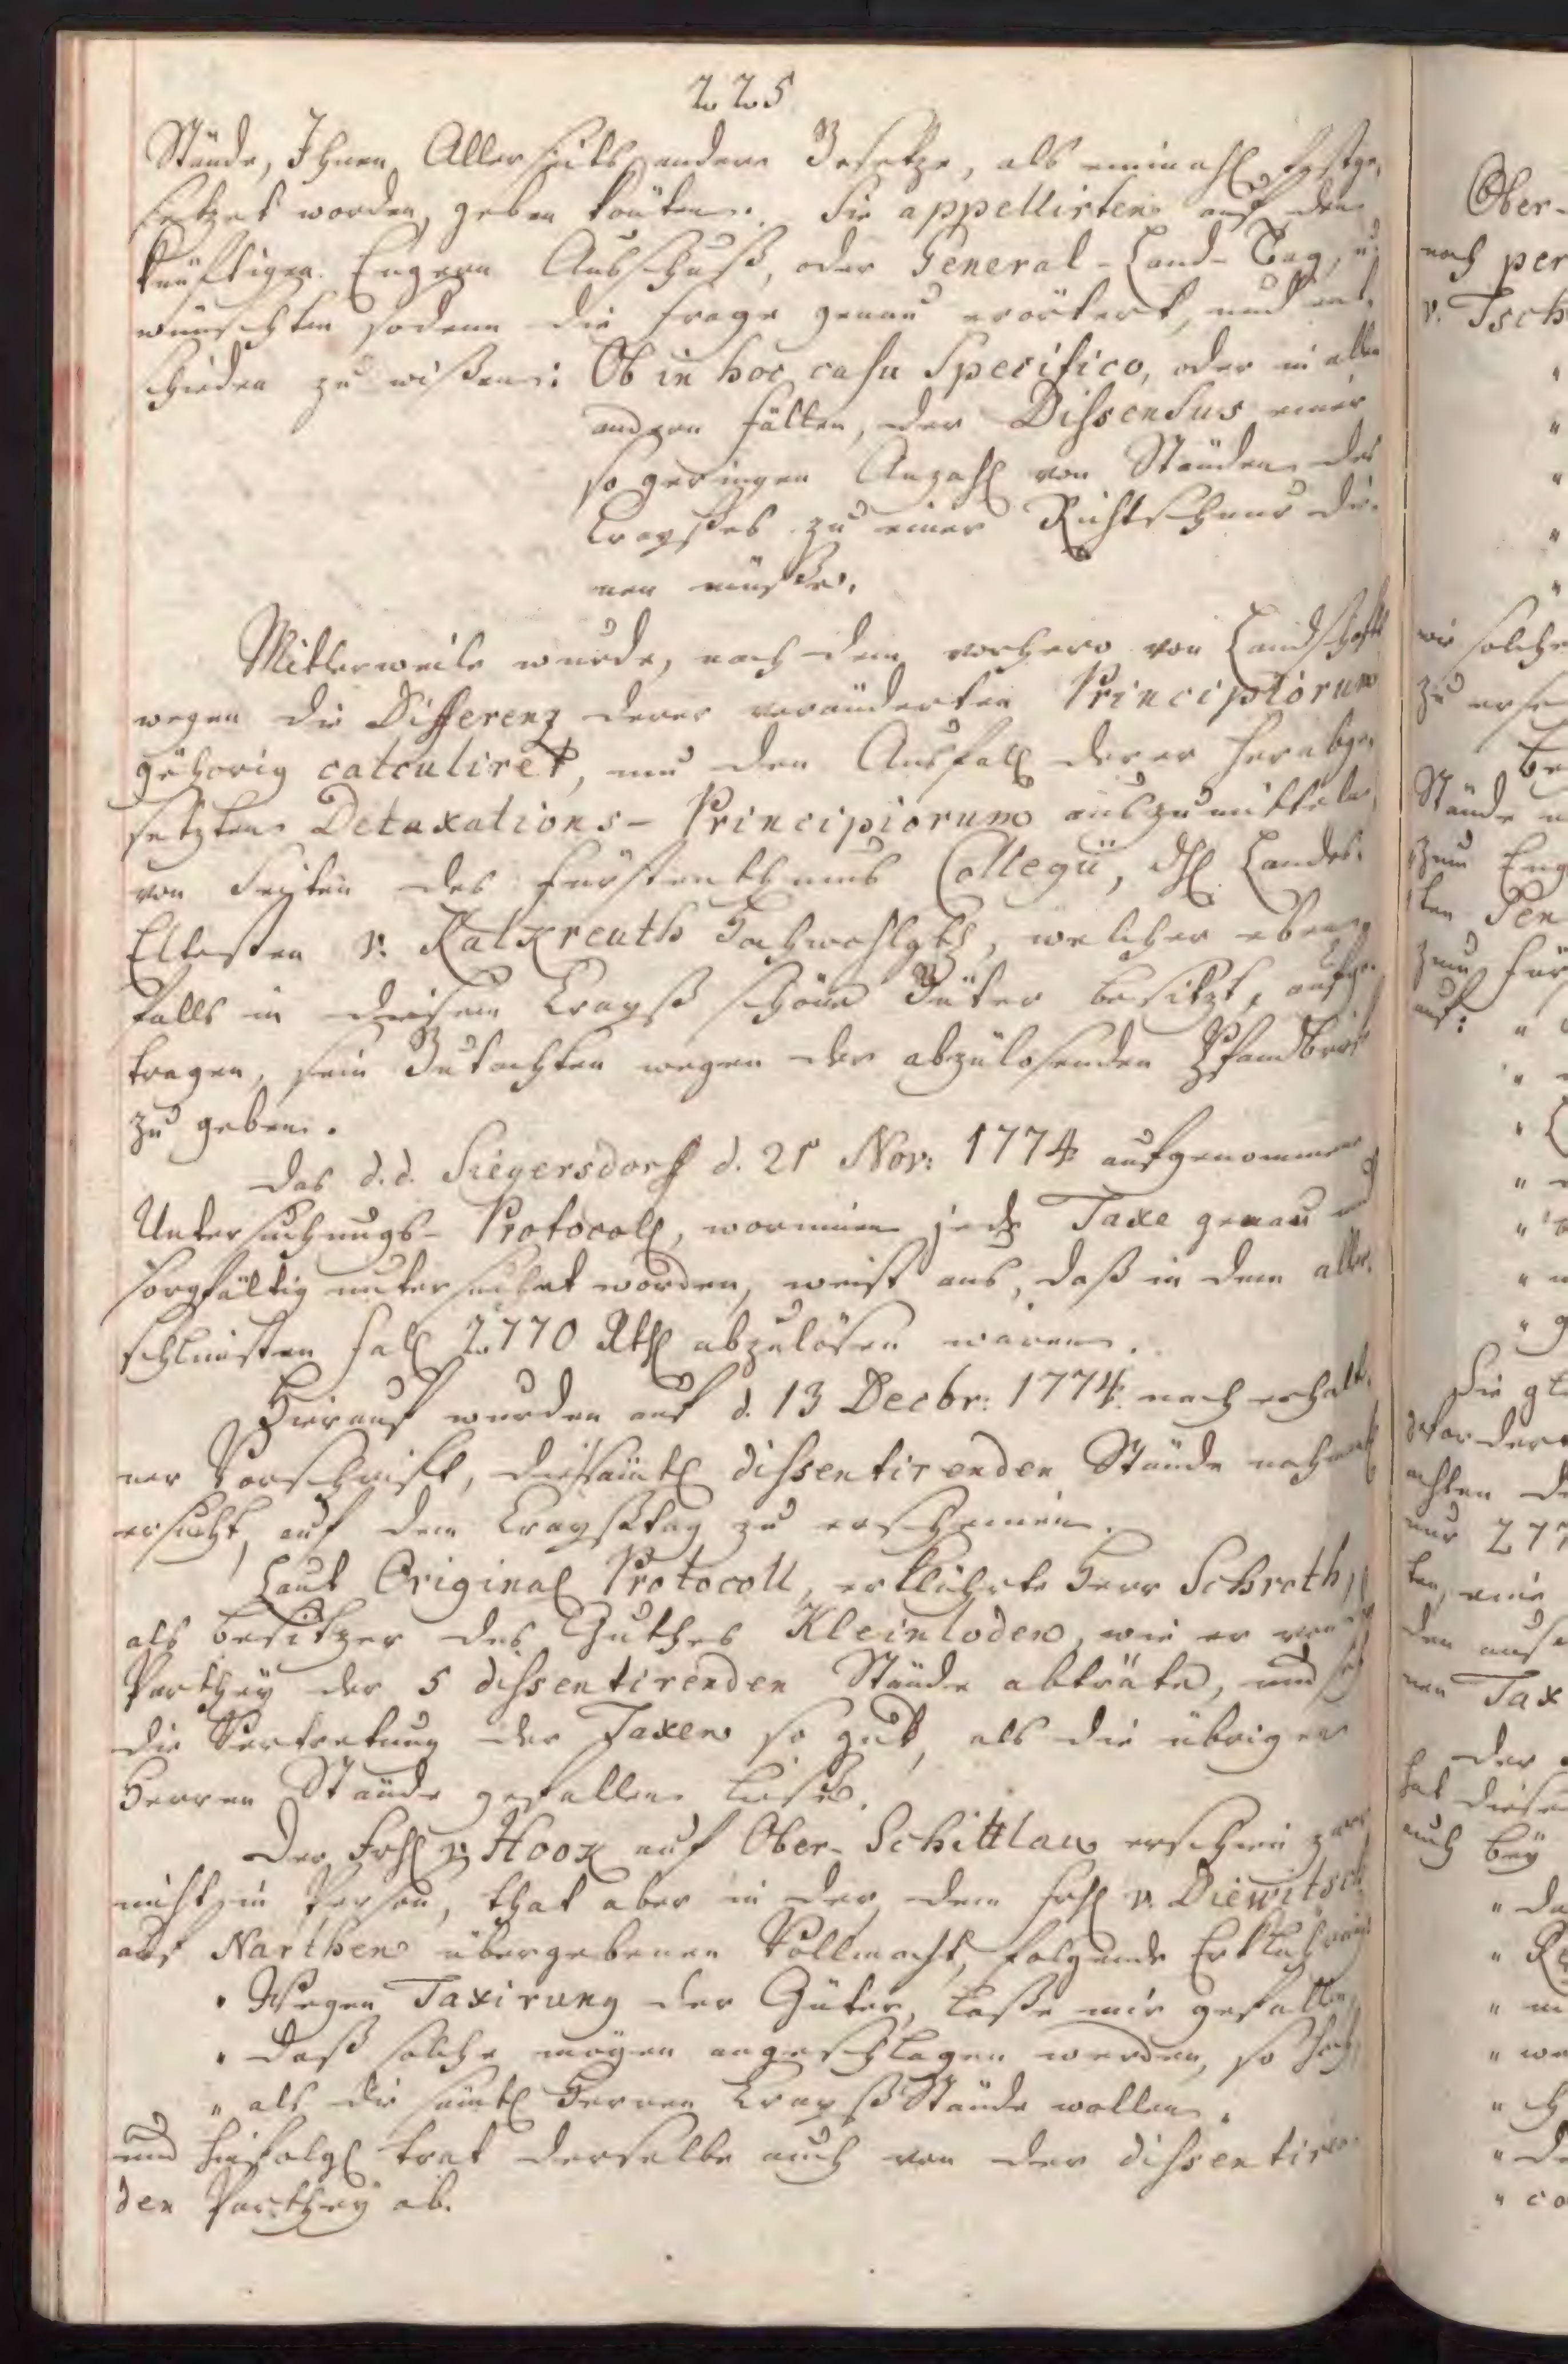 225
Stände, Ihnen Allerseits andere Gesetze, als einmahl festge-
setzet worden, geben könten. Sie appellirten auf den
künftigen Engern Ausschuß, oder General-Land-Tag, u.
wünschten sodenn die Frage genau erörtert, und ent-
schieden zu wißen: Ob in hoc casu Specifico, oder in allen
andern Fällen, der Dissensus einer
so geringen Anzahl von Ständen des
Crayßes zu einer Richtschnur die-
nen müße.
Mitlerweile wurde, nach dem vorhero von Landschafts
wegen die Differenz derer veränderten Principiorum
gehörig calculiret, um den Ausfall derer herabge-
setzten Detaxations-Principiorum auszumitteln,
von Seiten des Fürstenthums Collegii, dH Landes-
Eltesten v. Kalkreuth Hochwohlgb, welcher eben-
falls in diesem Crayß schöne Güter besitzt, aufge-
tragen, sein Gutachten wegen der abzulösenden Pfandbriefe
zu geben.
Das d.d. Siegersdorff d. 21 Nov: 1774 aufgenommene
Untersuchungs-Protocoll, worinnen jede Taxe genau und
sorgfältig untersuchet worden, weist aus, daß in dem aller-
schlimsten Fall 2770 Rthl abzulösen wären.
Hierauf wurden auf d. 13 Decbr: 1774. nach erhalte-
ner Vorschrift, die sämtl dissentirenden Stände nochmahl
ersucht, auf dem Crayßtag zu erscheinen.
Laut Original Protocoll, erklährte Herr Schroth,
als Besitzer des Guthes Kleinloden, wie er von
Parthey der 5 dissentirenden Stände abträte, und sich
die Vertretung der Taxen so gut, als die übrigen
Herren Stände gefallen ließe.
Der Frh v. Hook auf Ober-Schittlau erschien zwar
nicht in Person, that aber in der, dem Frh v. Diewitsch
auf Narthen übergebenen Vollmacht, folgende Erklährung
" Wegen Taxirung der Güter, laße mir gefallen,
" daß solche mögen angeschlagen werden, so hoch,
" als die sämtl Herren Crayß Stände wollen.
und hiefolgl trat derselbe auch von der dissentiren-
den Parthey ab.
Ober-
noch per
v. Tsch
wir solche
zu
Stände
zum Eng
zum Für
auf:
Die gl
achten
nur 277
den
nen Tax
Der
hat diesen
auch bey